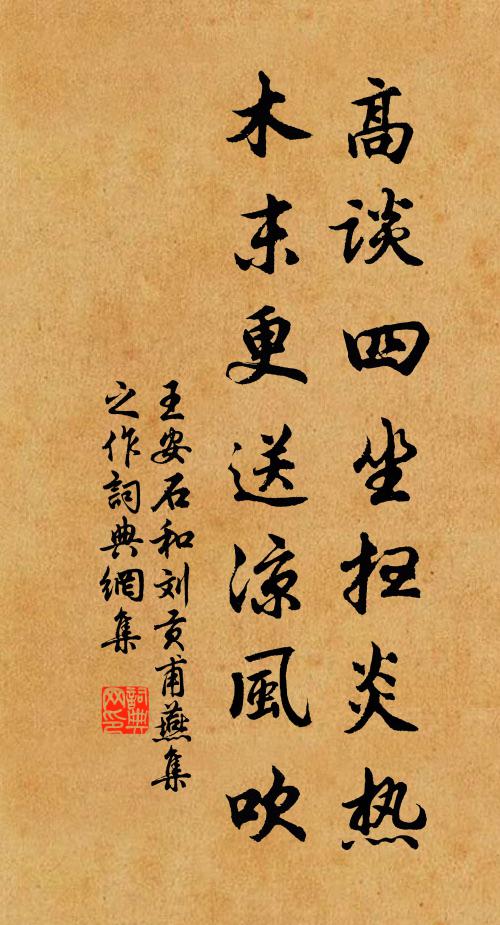 高谈四坐扫炎热
木末更送凉風吹
王安石和刘贡甫燕集
之作詞典網集
詞典
网印